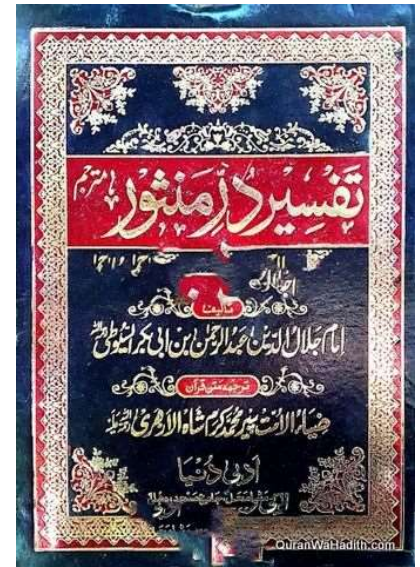 تفسیر دُرِّ منثور مترجم
تالیف
امام جلال الدین عبدالرحمٰن بن ابی بکر السیوطی
ترجمہ متن قرآن
ضیاء الامت پیر محمد کرم شاہ الازہری
ادبی دنیا
QuranWaHadith.com